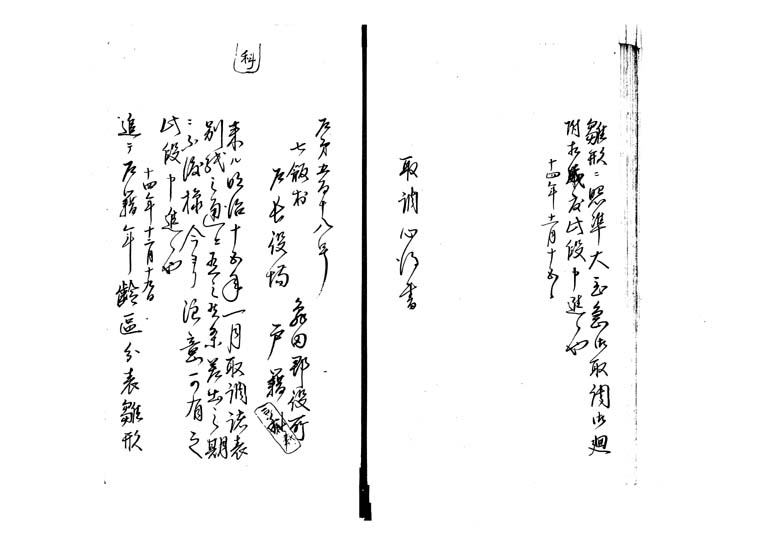 雛形ニ照準大至急御取調御廻
附相成度此段申進候也
十四年十二月十五日
取調心得書
戸第五百十八号
亀田郡役所
七飯村
戸長役場 戸籍
来ル明治十五年一月取調諸表
別紙之通ニ有之候条差出之期
ニ不後様今ヨリ注意可有之
此段申進候也
十四年十二月十九日
追テ戸籍年齢区分表雛形
科